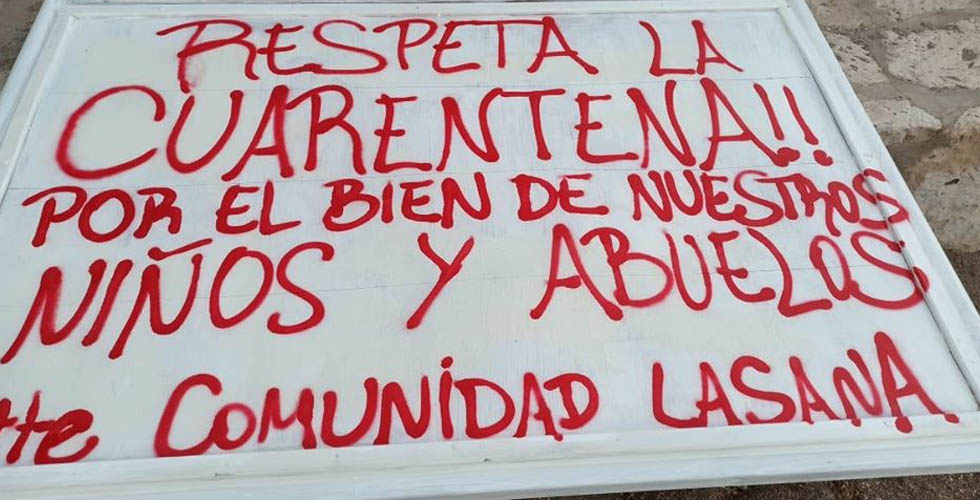 RESPETA LA
CUARENTENA!!
POR EL BIEN DE NUESTROS
NIÑOS Y ABUELOS
Atte COMUNIDAD LASANA